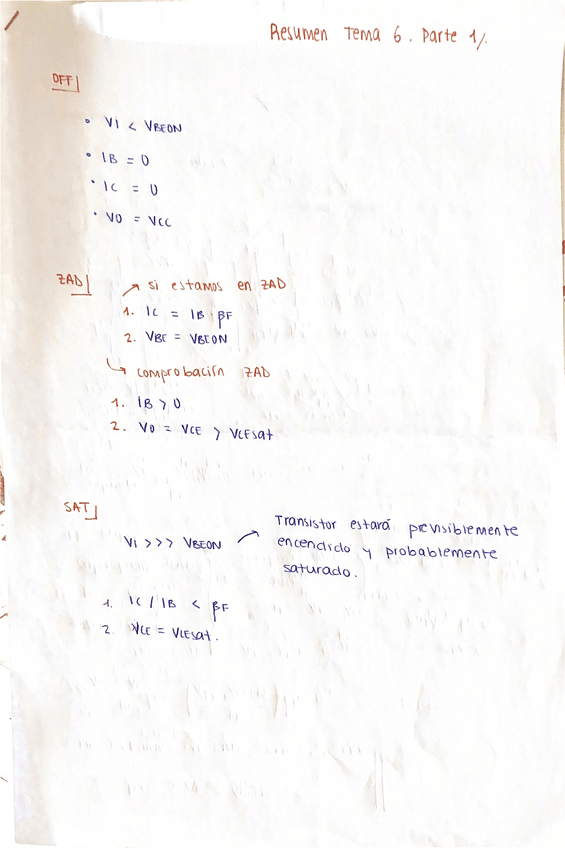 Resumen Tema 6. Parte 1/.
OFF
• VI < VBEON
• IB = 0
• IC = 0
• VO = VCC
ZAD
→ si estamos en ZAD
1. IC = IB · βF
2. VBE = VBEON
→ comprobación ZAD
1. IB > 0
2. VO = VCE > VCEsat
SAT
VI >>> VBEON → Transistor estará previsiblemente
encendido y probablemente
saturado.
1. IC / IB < βF
2. VCE = VCEsat.